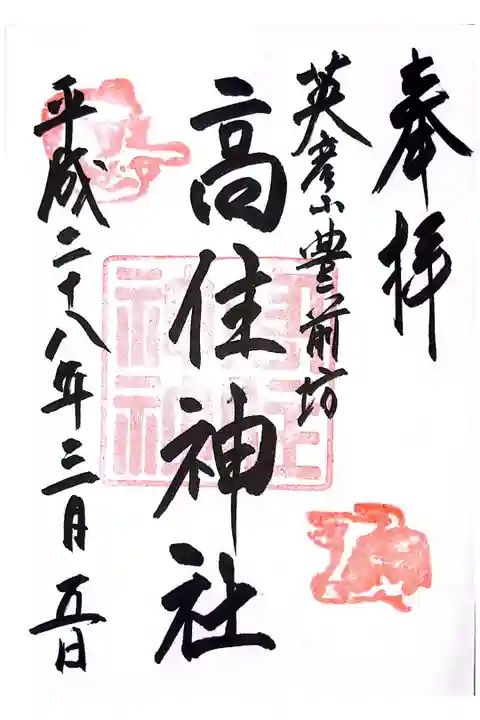 奉拝
英彦山豊前坊
高住神社
平成二十八年三月五日